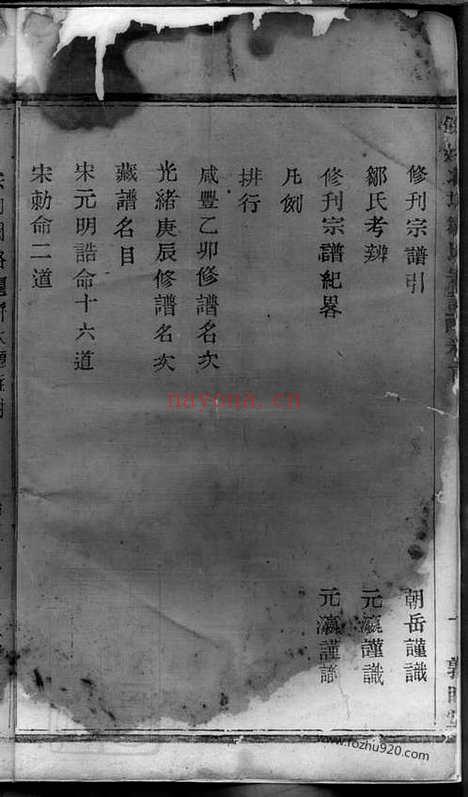 修刊宗譜引
朝岳謹識
鄒氏考辨
元瀛謹識
修刊宗譜紀畧
元瀛謹諦
凡例
排行
咸豐乙卯修譜名次
光緒庚辰修譜名次
藏譜名目
宋元明誥命十六道
宋勅命二道
nayona.cn
www.fozhu920.com